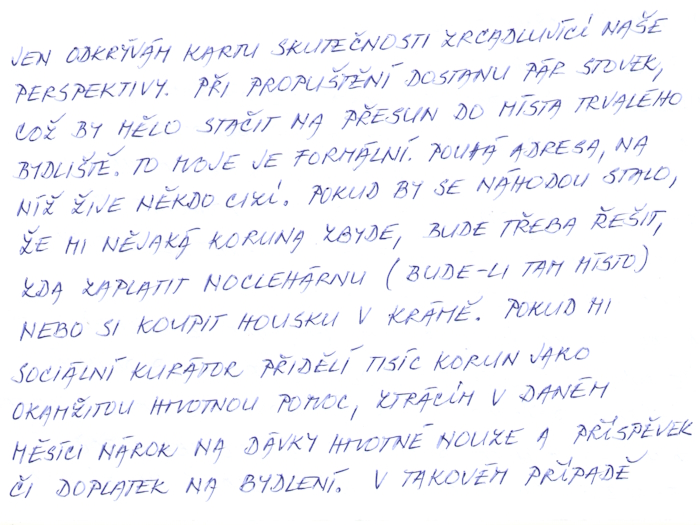 JEN ODKRÝVÁM KARTU SKUTEČNOSTI ZRCADLUJÍCÍ NAŠE
PERSPEKTIVY. PŘI PROPUŠTĚNÍ DOSTANU PÁR STOVEK,
COŽ BY MĚLO STAČIT NA PŘESUN DO MÍSTA TRVALÉHO
BYDLIŠTĚ. TO MOJE JE FORMÁLNÍ. POUHÁ ADRESA, NA
NÍŽ ŽIJE NĚKDO CIZÍ. POKUD BY SE NÁHODOU STALO,
ŽE MI NĚJAKÁ KORUNA ZBYDE, BUDE TŘEBA ŘEŠIT,
ZDA ZAPLATIT NOCLEHÁRNU (BUDE-LI TAM MÍSTO)
NEBO SI KOUPIT HOUSKU V KRÁMĚ. POKUD MI
SOCIÁLNÍ KURÁTOR PŘIDĚLÍ TISÍC KORUN JAKO
OKAMŽITOU HMOTNOU POMOC, ZTRÁCÍM V DANÉM
MĚSÍCI NÁROK NA DÁVKY HMOTNÉ NOUZE A PŘÍSPĚVEK
ČI DOPLATEK NA BYDLENÍ. V TAKOVÉM PŘÍPADĚ